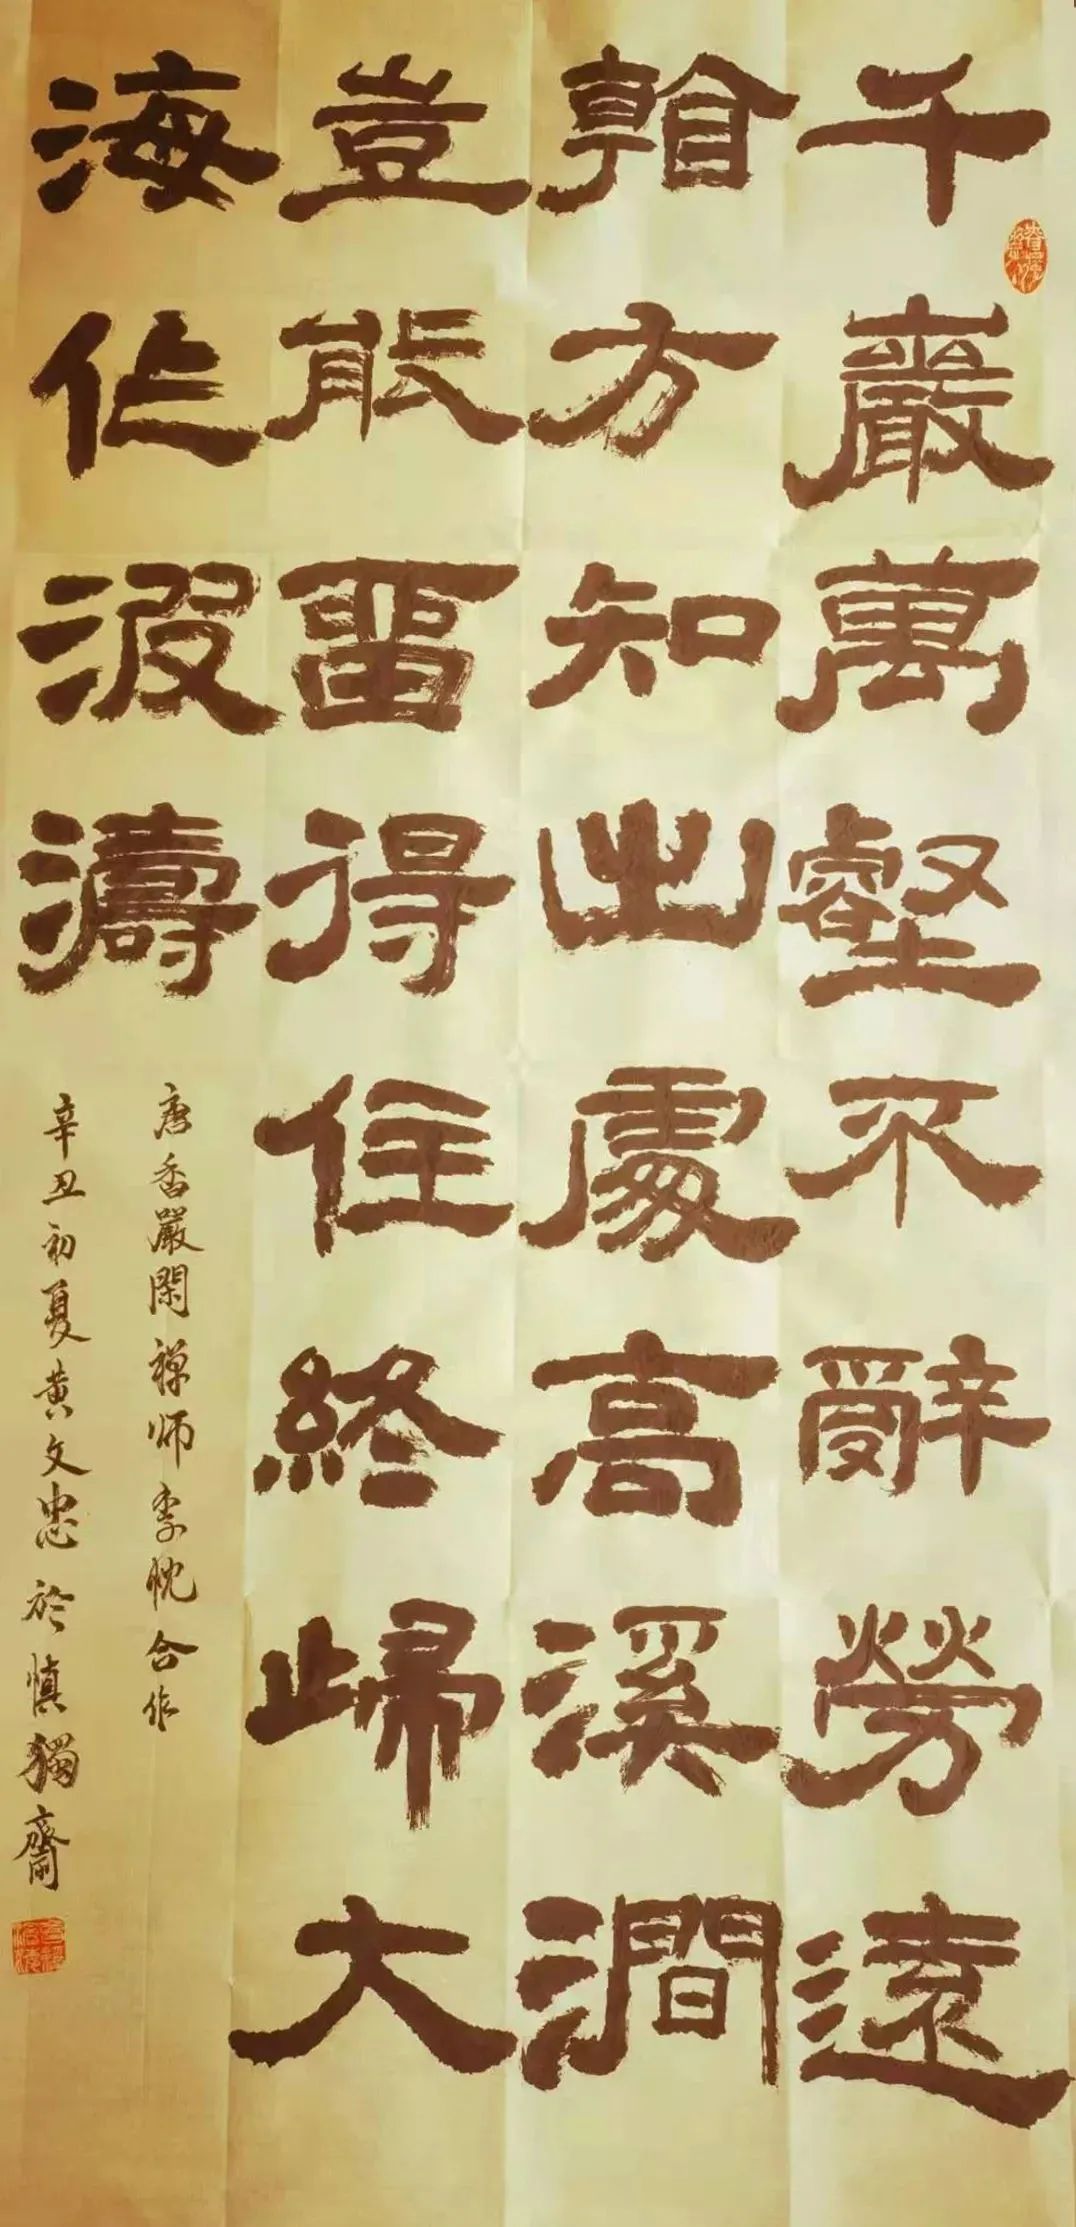 千巖萬壑不辭勞遠
看方知出處高溪澗
豈能畱得住終歸大
海作波濤
唐香嚴閑禪师李忱合作
辛丑初夏黄文忠於慎獨齋